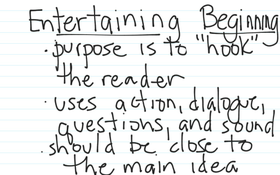 Entertaining Beginning
• purpose is to "hook"
the reader
• uses action, dialogue,
questions, and sound
• should be close to
the main idea